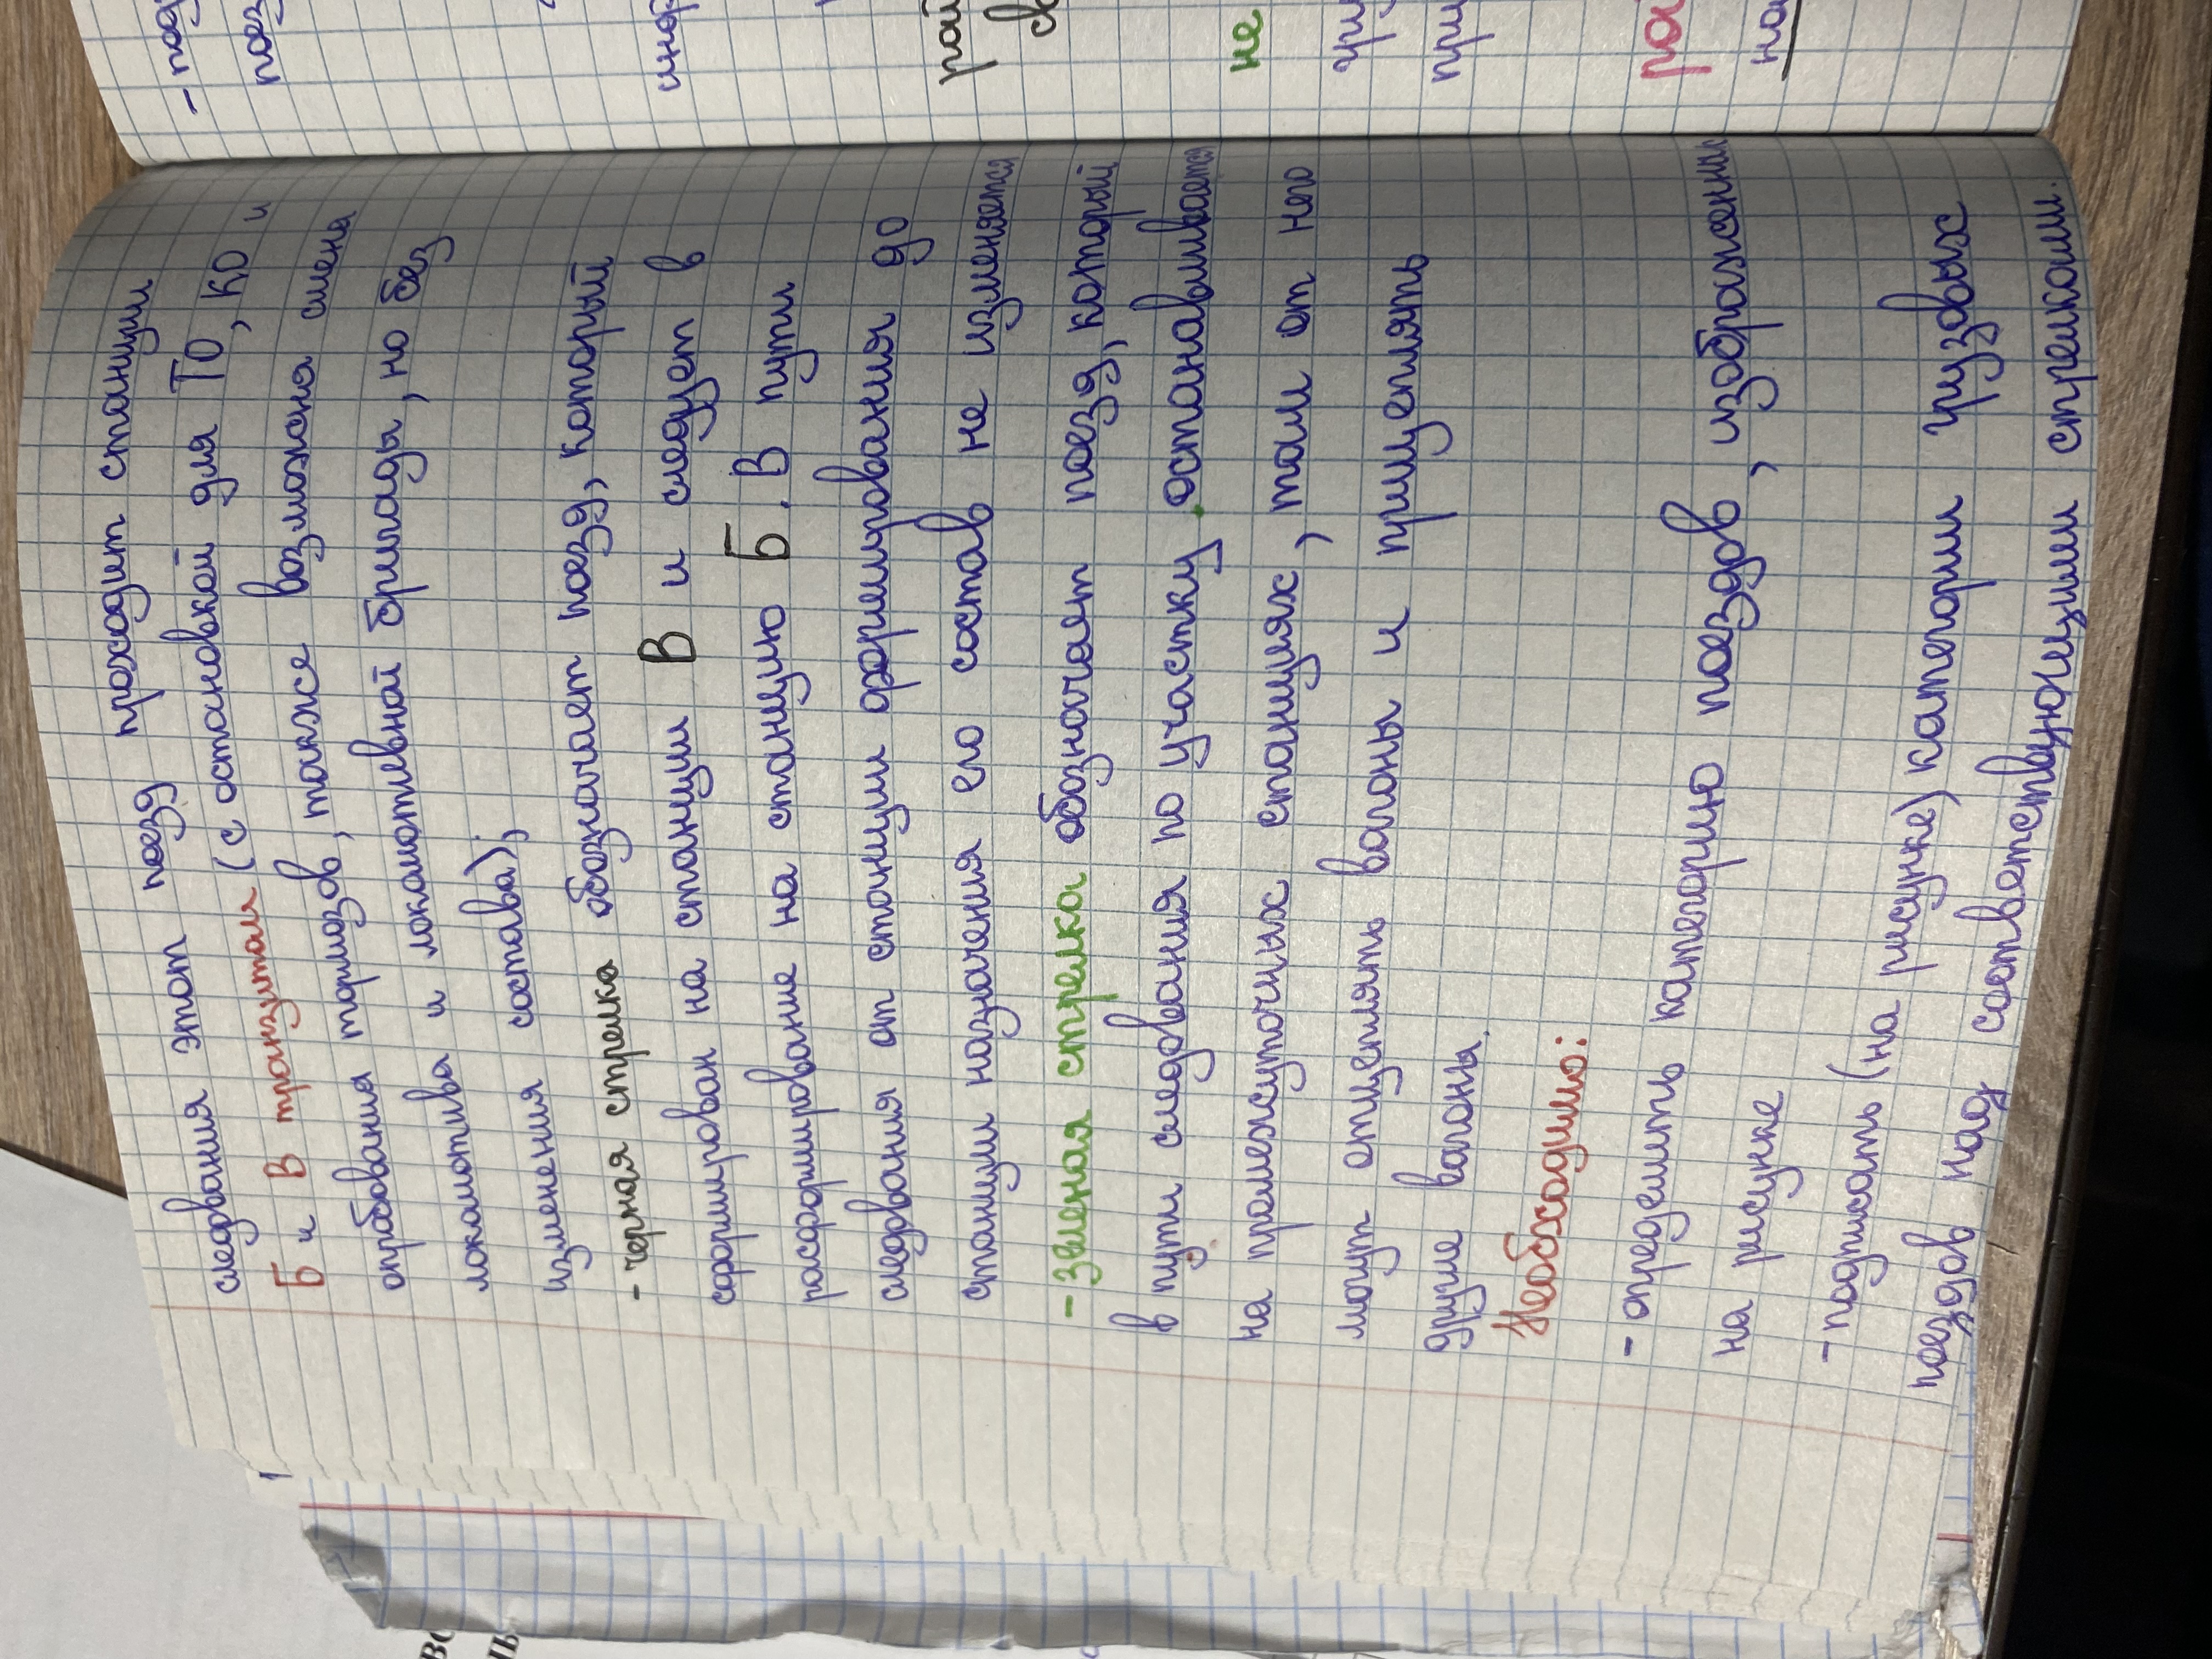 следования этот поезд проходит станции
Б и В транзитом (с остановкой для ТО, КО и
опробования тормозов, также возможна смена
локомотива и локомотивной бригады, но без
изменения состава);
- черная стрелка обозначает поезд, который
сформирован на станции В и следует в
расформирование на станцию Б. В пути
следования от станции формирования до
станции назначения его состав не изменяется
- зеленая стрелка обозначает поезд, который
в пути следования по участку останавливается
на промежуточных станциях, там от него
могут отцеплять вагоны и прицеплять
другие вагоны.
Необходимо:
- определить категорию поездов, изображенных
на рисунке
- подписать (на рисунке) категории грузовых
поездов над соответствующими стрелками.
- под
поез
рой
не
при
на